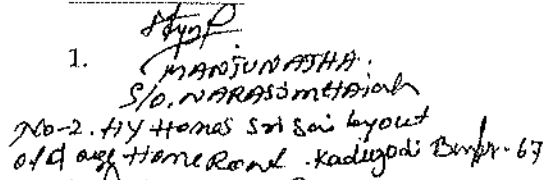 1.
MANJUNATHA.
S/o. NARASIMHAiah
No-2. HY Homes Sri Sai layout
old age Home Road. Kadugodi - 67